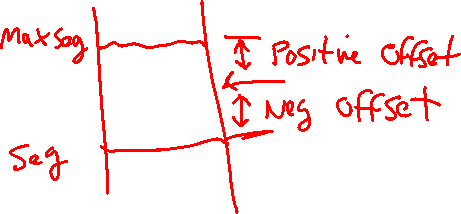 Maxseg
Positive Offset
Neg Offset
Seg